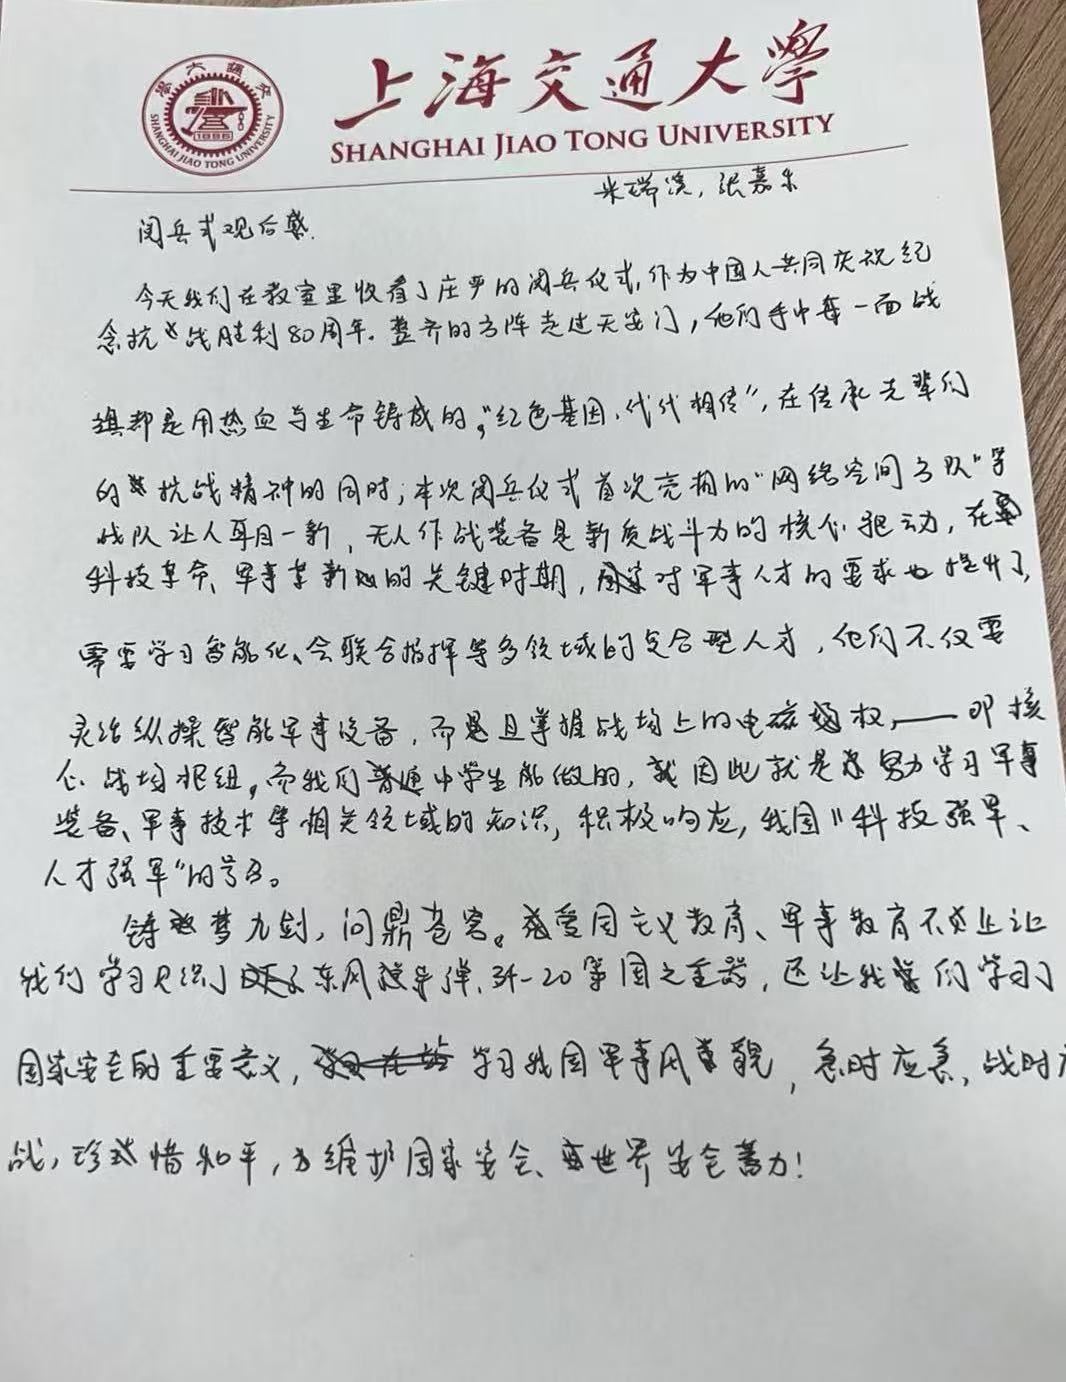 上海交通大學
SHANGHAI JIAO TONG UNIVERSITY
學大通交
SHANGHAI JIAO TONG UNIVERSITY
1896
米瑞滨，张嘉乐
阅兵式观后感.
今天我们在教室里收看了庄严的阅兵仪式,作为中国人共同庆祝纪
念抗战胜利80周年. 整齐的方阵走过天安门,他们手中每一面战
旗都是用热血与生命铸成的，"红色基因、代代相传"，在传承先辈们
的抗战精神的同时；本次阅兵仪式首次亮相的"网络空间方队"等
战队让人耳目一新、无人作战装备是新质战斗力的核心驱动，在
科技革命、军事革新的关键时期，国家对军事人才的要求也提升了，
需要学习智能化、会联合指挥等多领域的复合型人才，他们不仅要
灵活纵操智能军事设备，而且掌握战场上的电磁权，——即核
心战场枢纽。而我们普通中学生能做的，因此就是努力学习军事
装备、军事技术等相关领域的知识，积极响应，我国"科技强军、
人才强军"的号召。
铸梦九剑，问鼎苍穹。爱国主义教育、军事教育不止让
我们学习见识了东风导弹、歼-20等国之重器，还让我们学习了
国家安全的重要意义，学习我国军事风貌，急时应急，战时应
战，珍惜和平，为维护国家安全、世界安全蓄力！